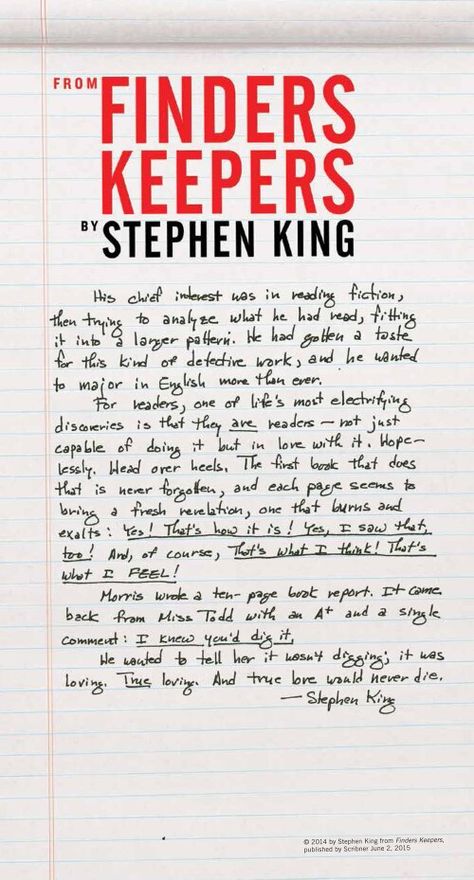 FROM FINDERS
KEEPERS
BY STEPHEN KING
His chief interest was in reading fiction,
then trying to analyze what he had read, fitting
it into a larger pattern. He had gotten a taste
for this kind of detective work, and he wanted
to major in English more than ever.
For readers, one of life's most electrifying
discoveries is that they are readers — not just
capable of doing it but in love with it. Hope-
lessly. Head over heels. The first book that does
that is never forgotten, and each page seems to
bring a fresh revelation, one that burns and
exalts: Yes! That's how it is! Yes, I saw that,
too! And, of course, That's what I think! That's
what I FEEL!
Morris wrote a ten-page book report. It came
back from Miss Todd with an A+ and a single
comment: I knew you'd dig it.
He wanted to tell her it wasn't digging; it was
loving. True loving. And true love would never die.
— Stephen King
© 2014 by Stephen King from Finders Keepers,
published by Scribner June 2, 2015